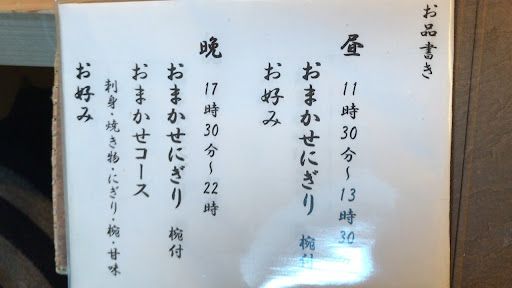 お品書き
昼 11時30分～13時30
おまかせにぎり 椀付
お好み
晩 17時30分～22時
おまかせにぎり 椀付
おまかせコース
刺身・焼き物・にぎり・椀・甘味
お好み